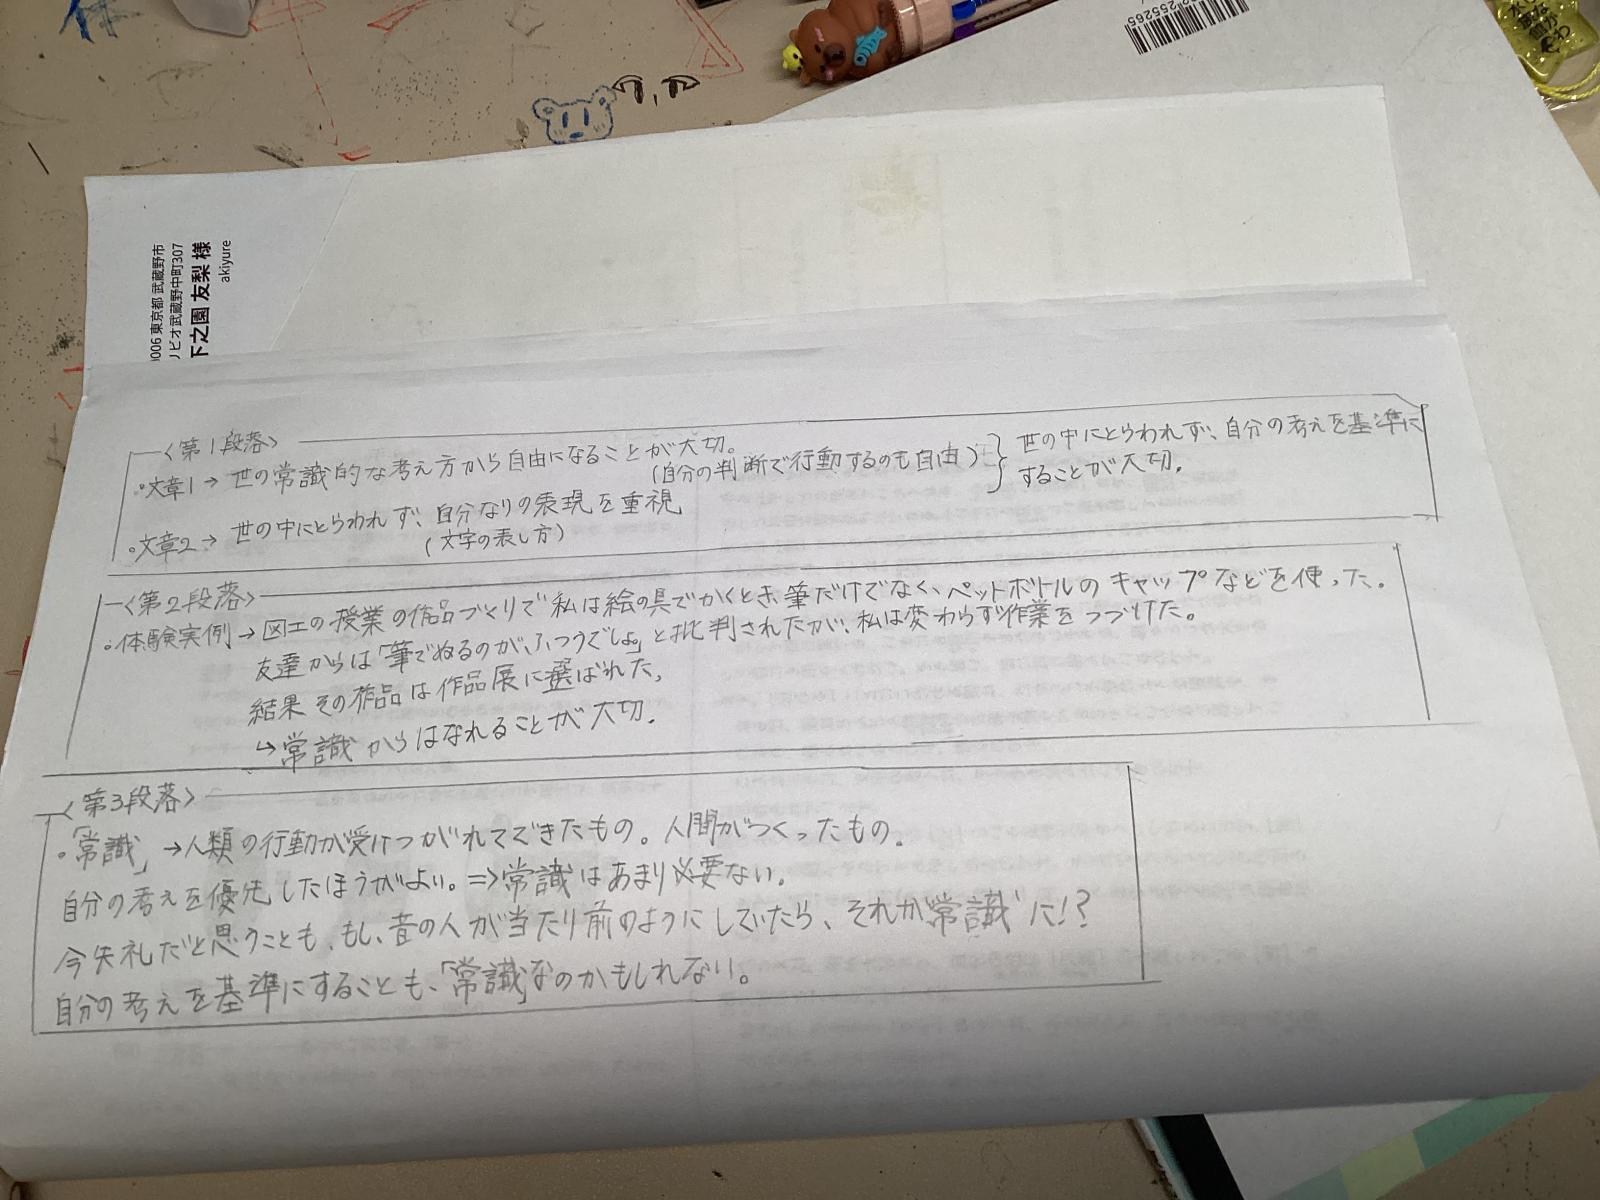 255265
水
006 東京都 武蔵野市
リビオ武蔵野中町307
下之園 友梨 様
akiyure
〈第1段落〉
・文章1→ 世の常識的な考え方から自由になることが大切。
(自分の判断で行動するのも自由)
・文章2→ 世の中にとらわれず、自分なりの表現を重視
(文字の表し方)
世の中にとらわれず、自分の考えを基準に
することが大切。
〈第2段落〉
・体験実例→図工の授業の作品づくりで私は絵の具でかくとき、筆だけでなく、ペットボトルのキャップなどを使った。
友達からは「筆でぬるのが、ふつうでしょ」と批判されたが、私は変わらず作業をつづけた。
結果その作品は作品展に選ばれた。
↳常識からはなれることが大切。
〈第3段落〉
・「常識」→人類の行動が受けつがれてできたもの。人間がつくったもの。
自分の考えを優先したほうがよい。⇒常識はあまり必要ない。
今失礼だと思うことも、もし、昔の人が当たり前のようにしていたら、それが"常識"に!?
自分の考えを基準にすることも、「常識」なのかもしれない。